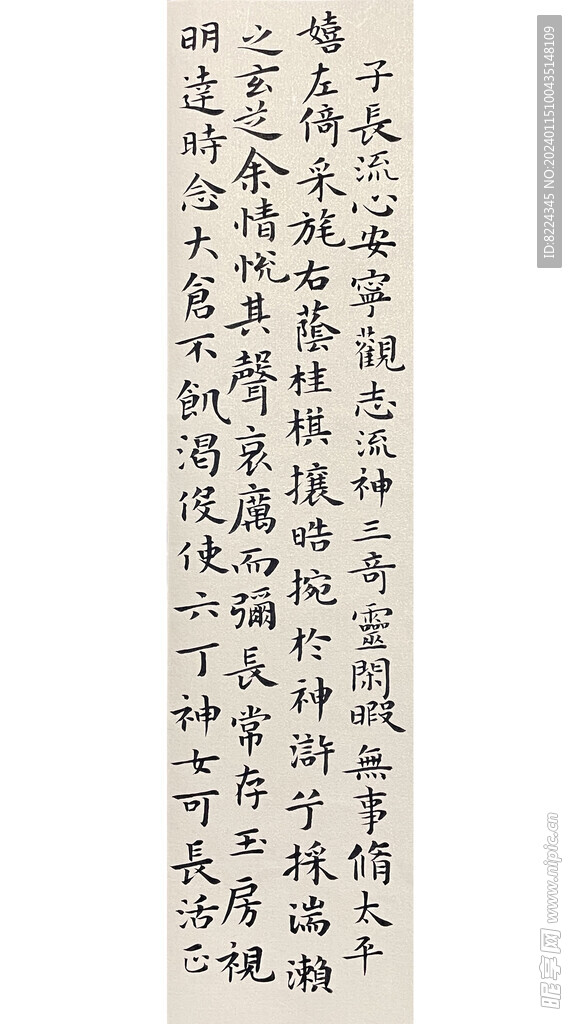 子長流心安寧觀志流神三奇靈閑暇無事脩太平
嬉左倚采旄右蔭桂棋攘皓捥於神滸兮採湍瀨
之玄芝余情悅其聲哀厲而彌長常存玉房視
明達時念大倉不飢渴役使六丁神女可長活正
ID:8224345 NO:20240115100435148109
昵享网 www.nipic.cn